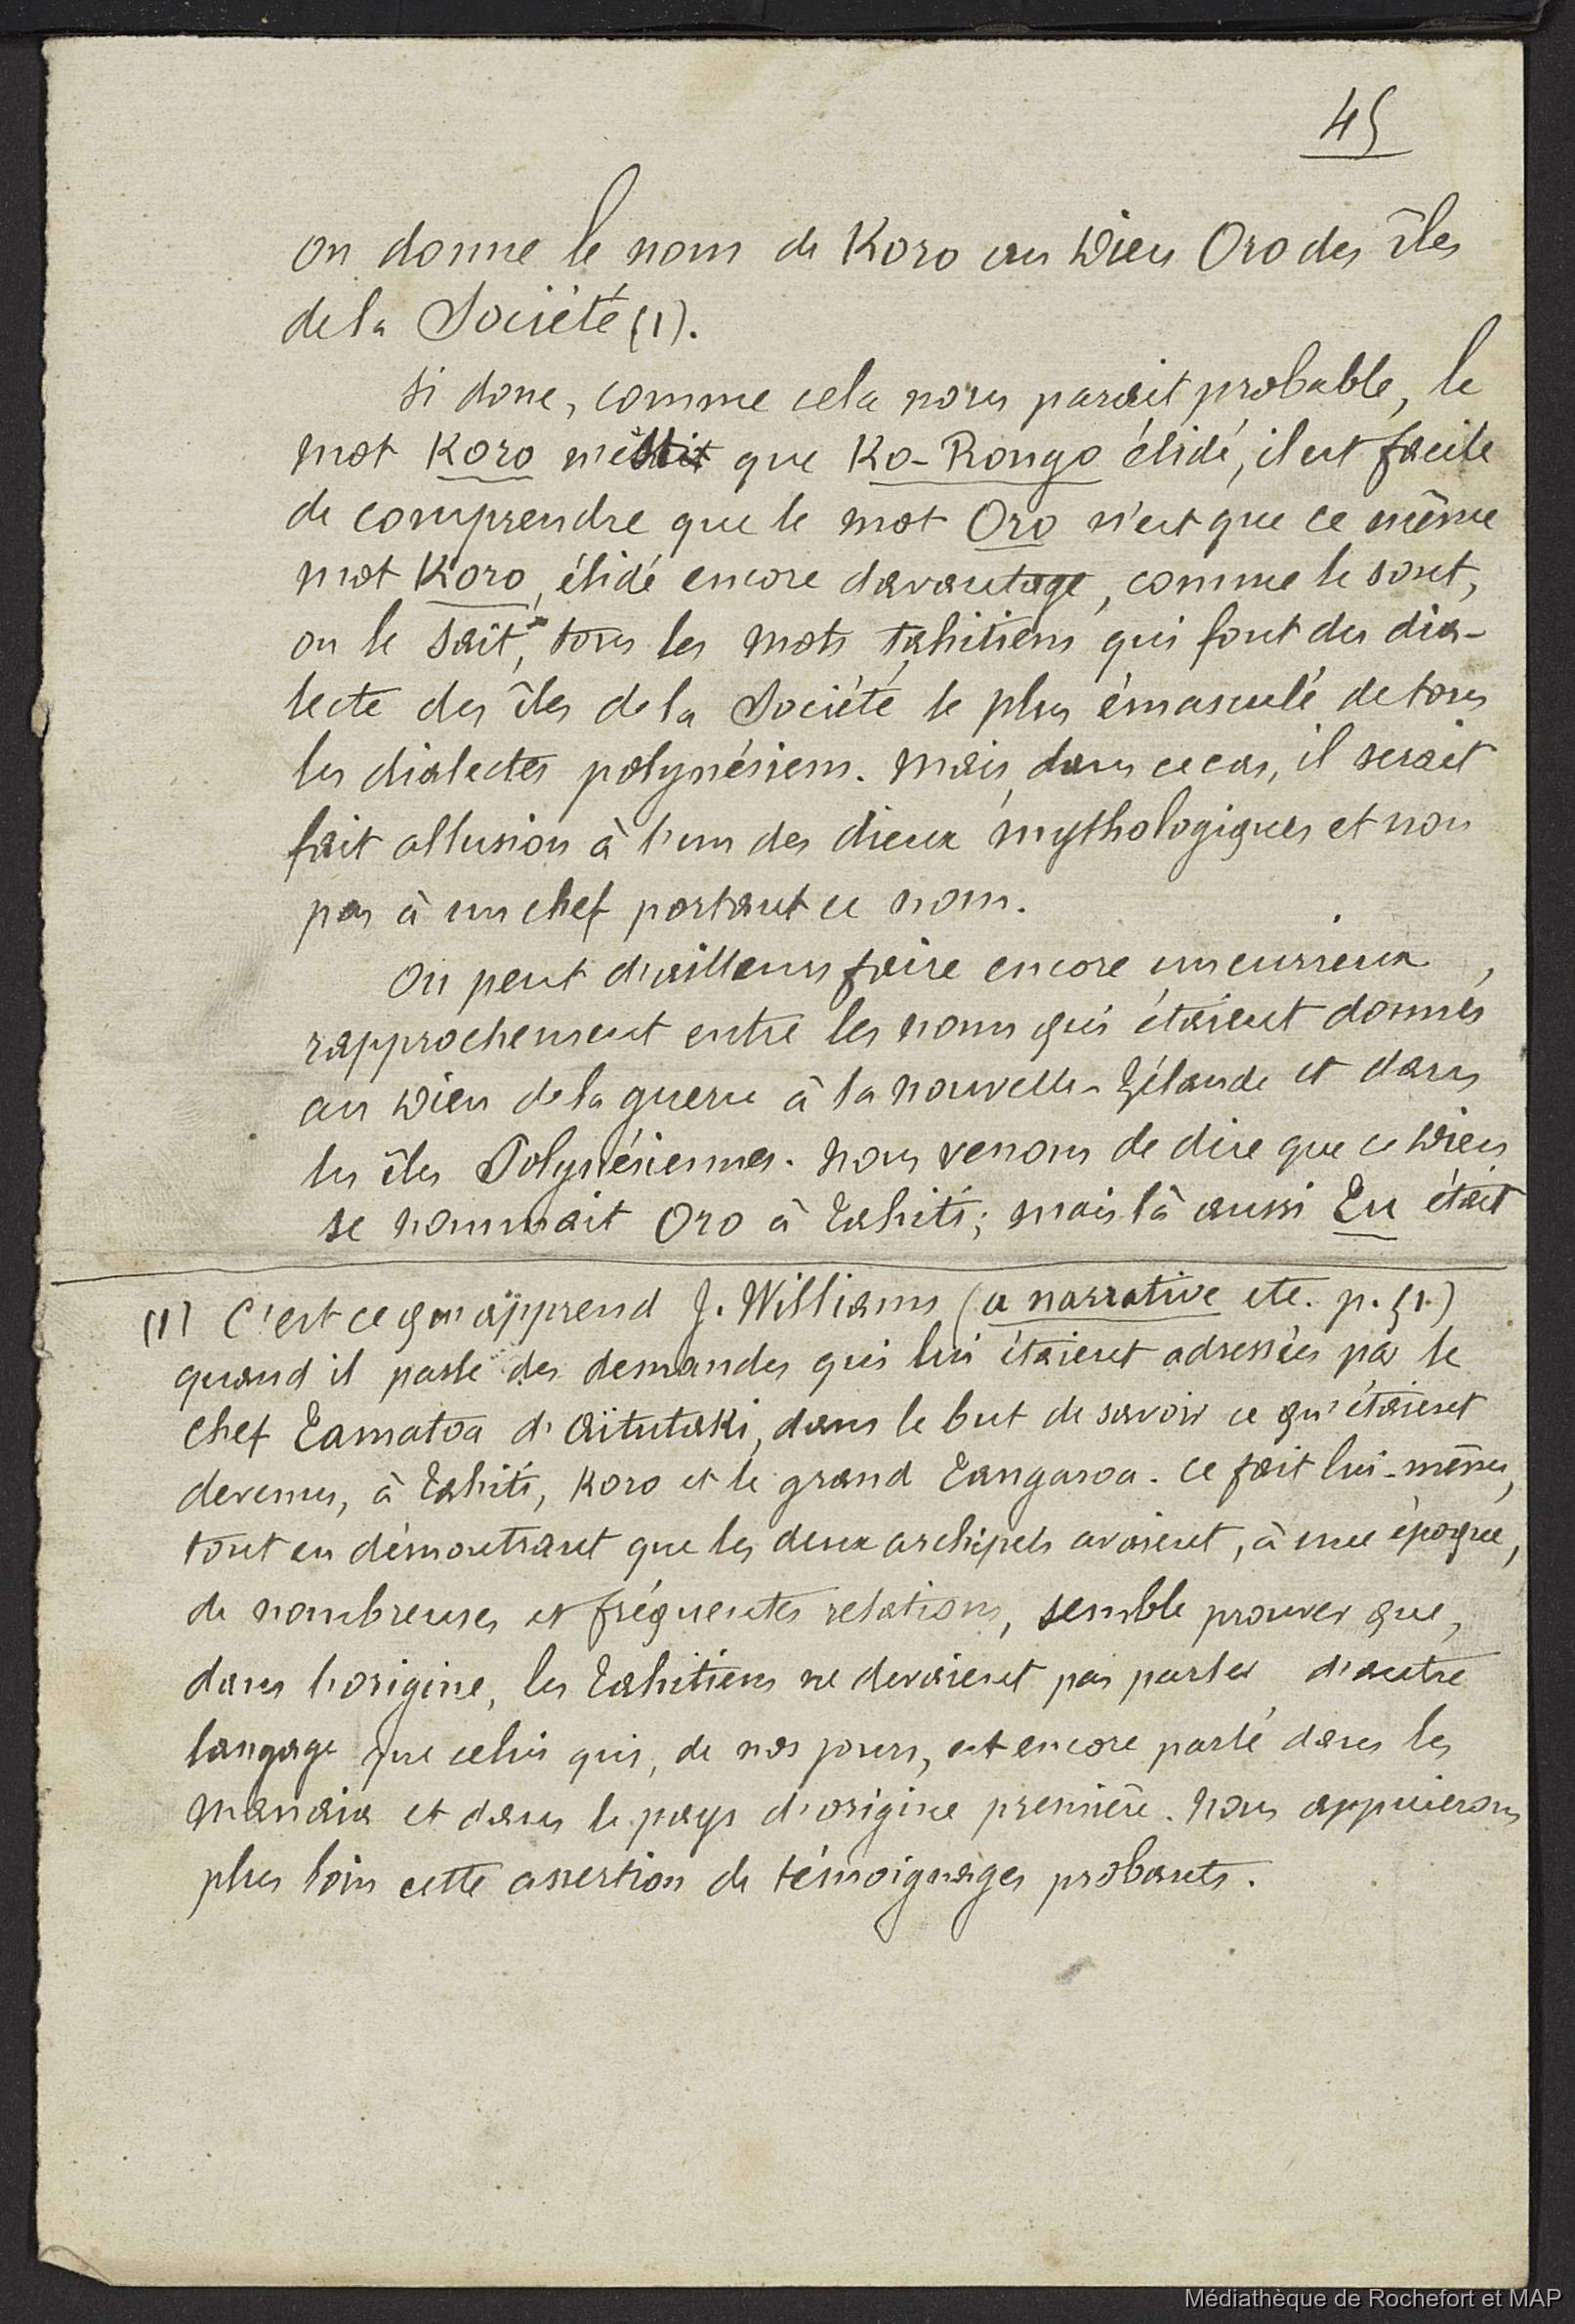 45
on donne le nom de Koro au Dieu Oro des îles
de la Société (1).
Si donc, comme cela nous parait probable, le
mot Koro n'était que Ko-Rongo élidé, il est facile
de comprendre que le mot Oro n'est que ce même
mot Koro, élidé encore davantage, comme le sont,
on le sait, tous les mots tahitiens qui font du dia-
lecte des îles de la Société le plus émasculé de tous
les dialectes polynésiens. Mais, dans ce cas, il serait
fait allusion à l'un des dieux mythologiques et non
pas à un chef portant ce nom.
On peut d'ailleurs faire encore un curieux
rapprochement entre les noms qui étaient donnés
au Dieu de la guerre à la Nouvelle-Zélande et dans
les îles Polynésiennes. Nous venons de dire que ce Dieu
se nommait Oro à Tahiti; mais là aussi Tu était
(1) C'est ce qu'apprend J. Williams (a narrative etc. p. 51.)
quand il parle des demandes qui lui étaient adressées par le
chef Tamatoa d'Aïtutaki, dans le but de savoir ce qu'étaient
devenus, à Tahiti, Koro et le grand Tangaroa. Ce fait lui-même,
tout en démontrant que les deux archipels avaient, à une époque,
de nombreuses et fréquentes relations, semble prouver que,
dans l'origine, les Tahitiens ne devaient pas parler d'autre
langage que celui qui, de nos jours, est encore parlé dans les
Manaia et dans le pays d'origine première. Nous appuierons
plus loin cette assertion de témoignages probants.
Médiathèque de Rochefort et MAP